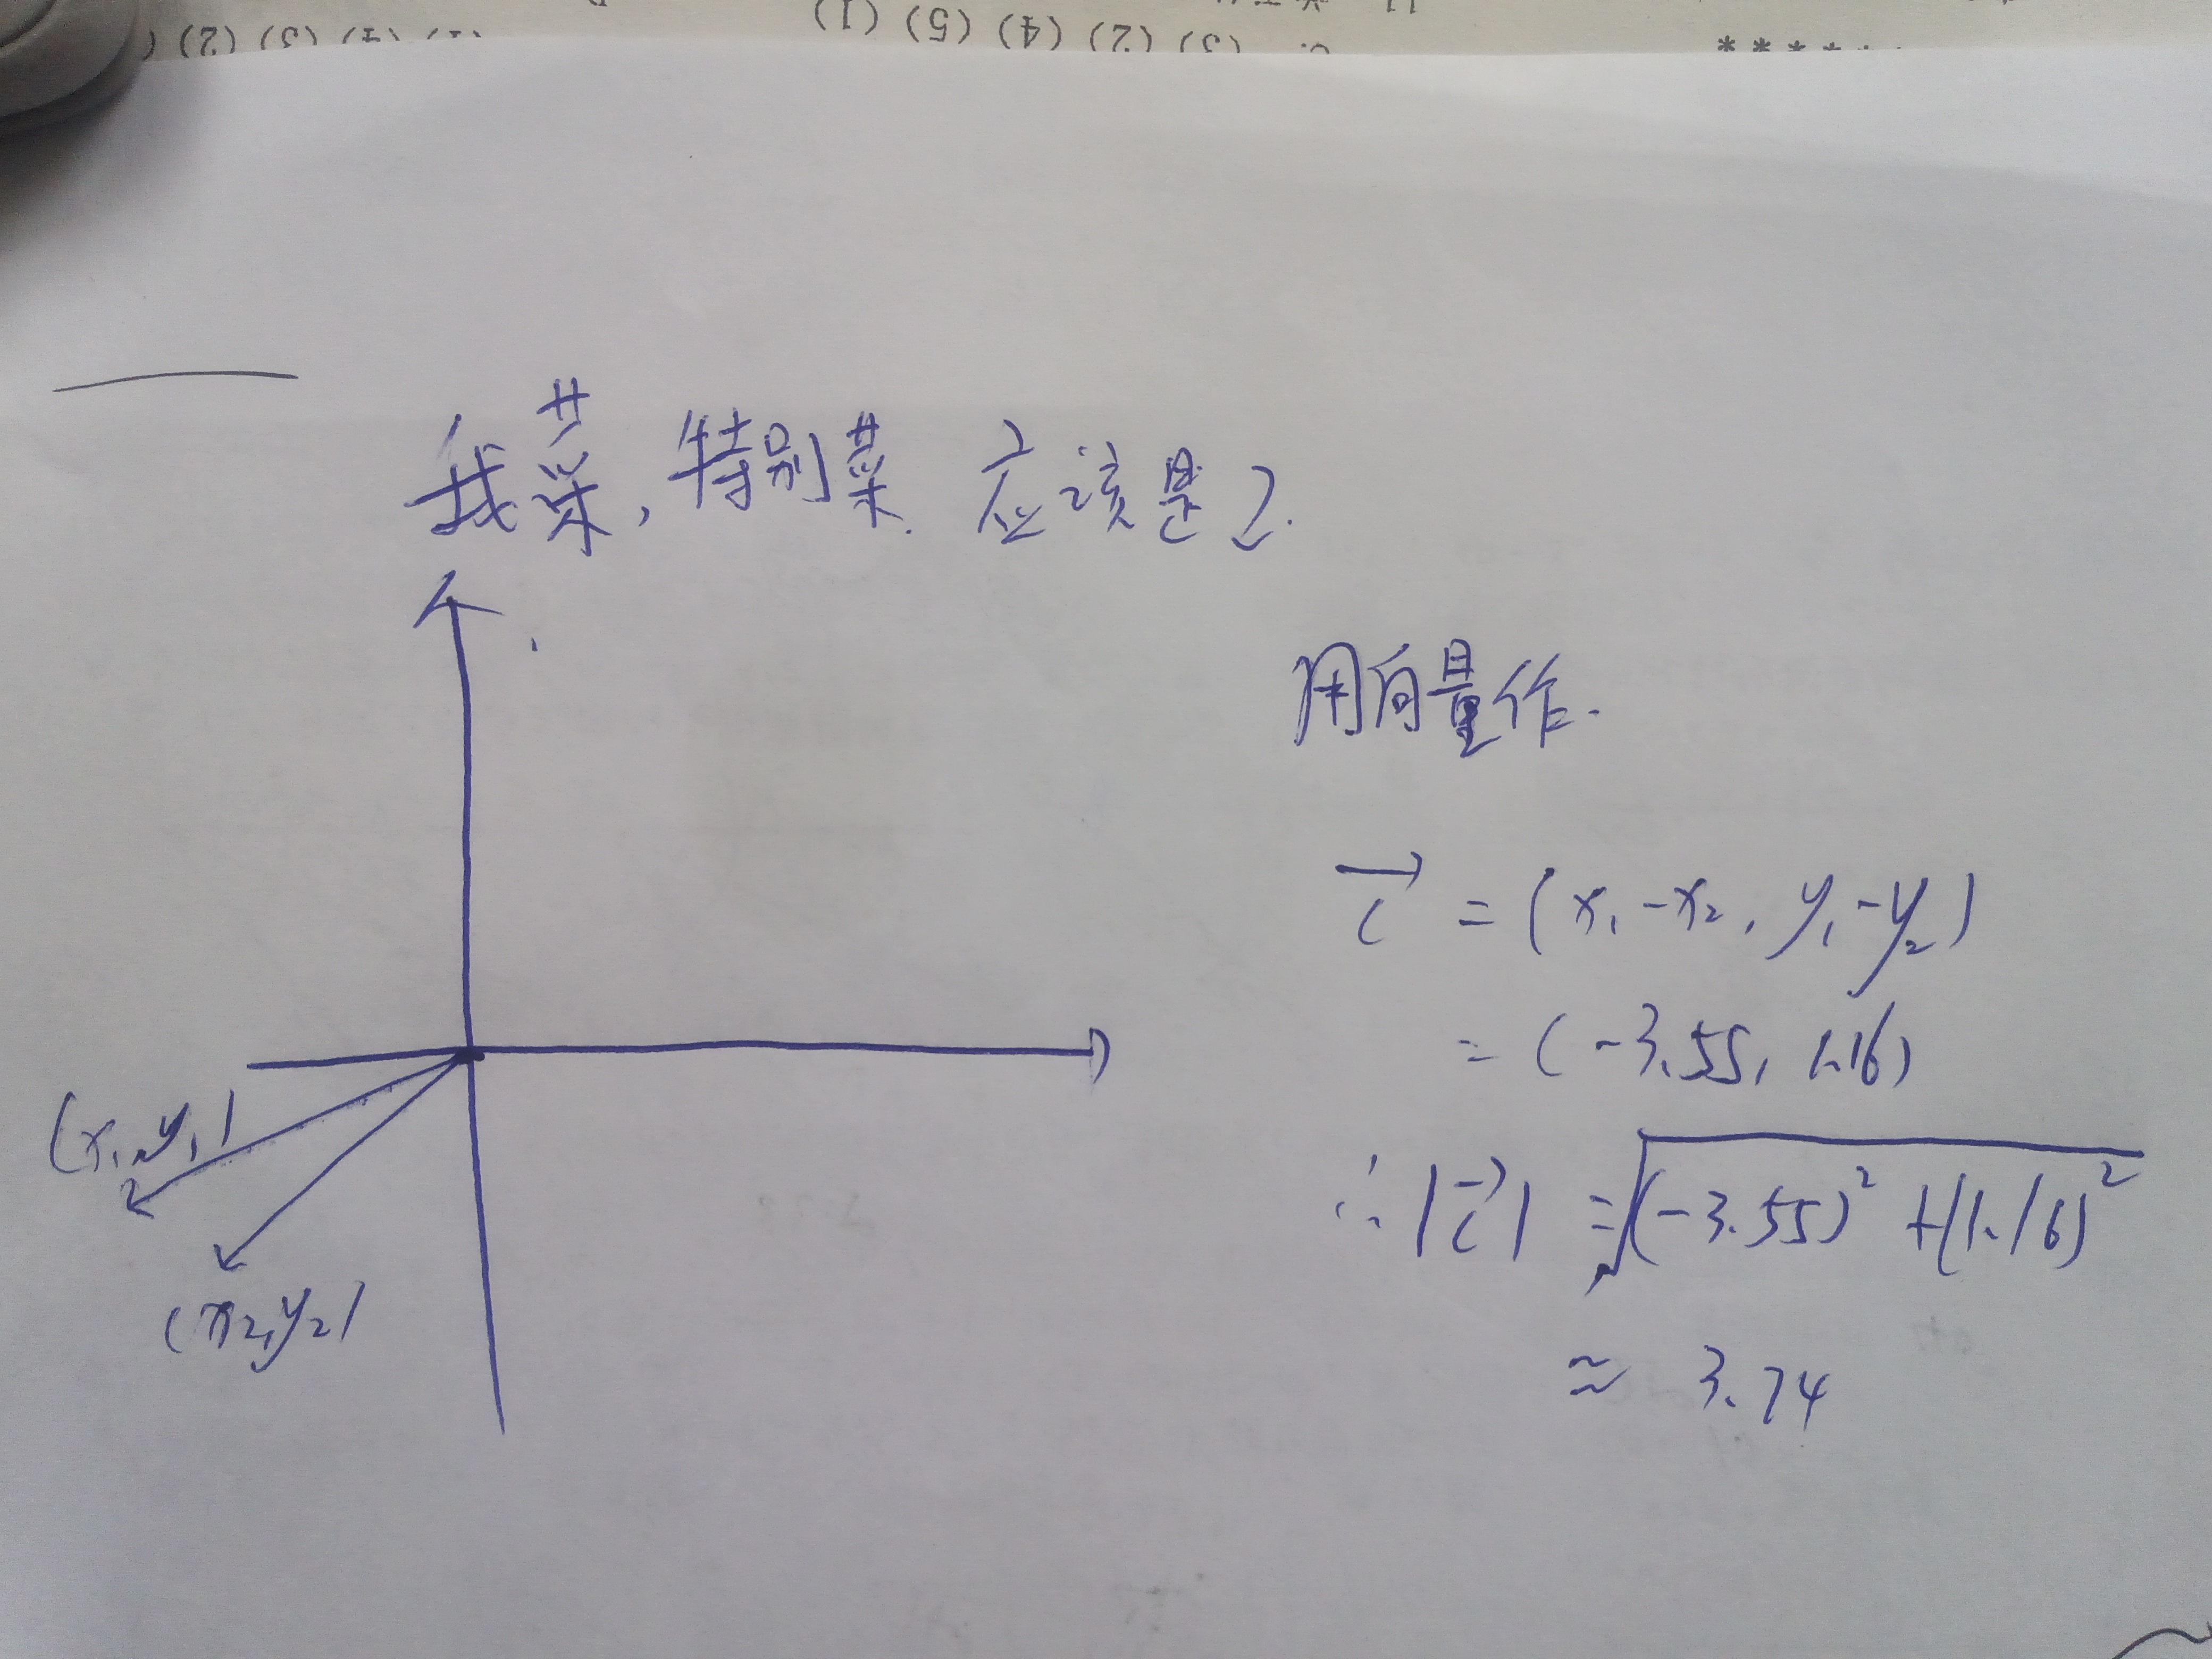 我菜,特别菜.应该是2.
用向量作.
c⃗ = (x₁-x₂, y₁-y₂)
= (-3.55, 1.16)
∴ |c⃗| = √((-3.55)² + (1.16)²)
≈ 3.74
(x₁,y₁)
(x₂,y₂)